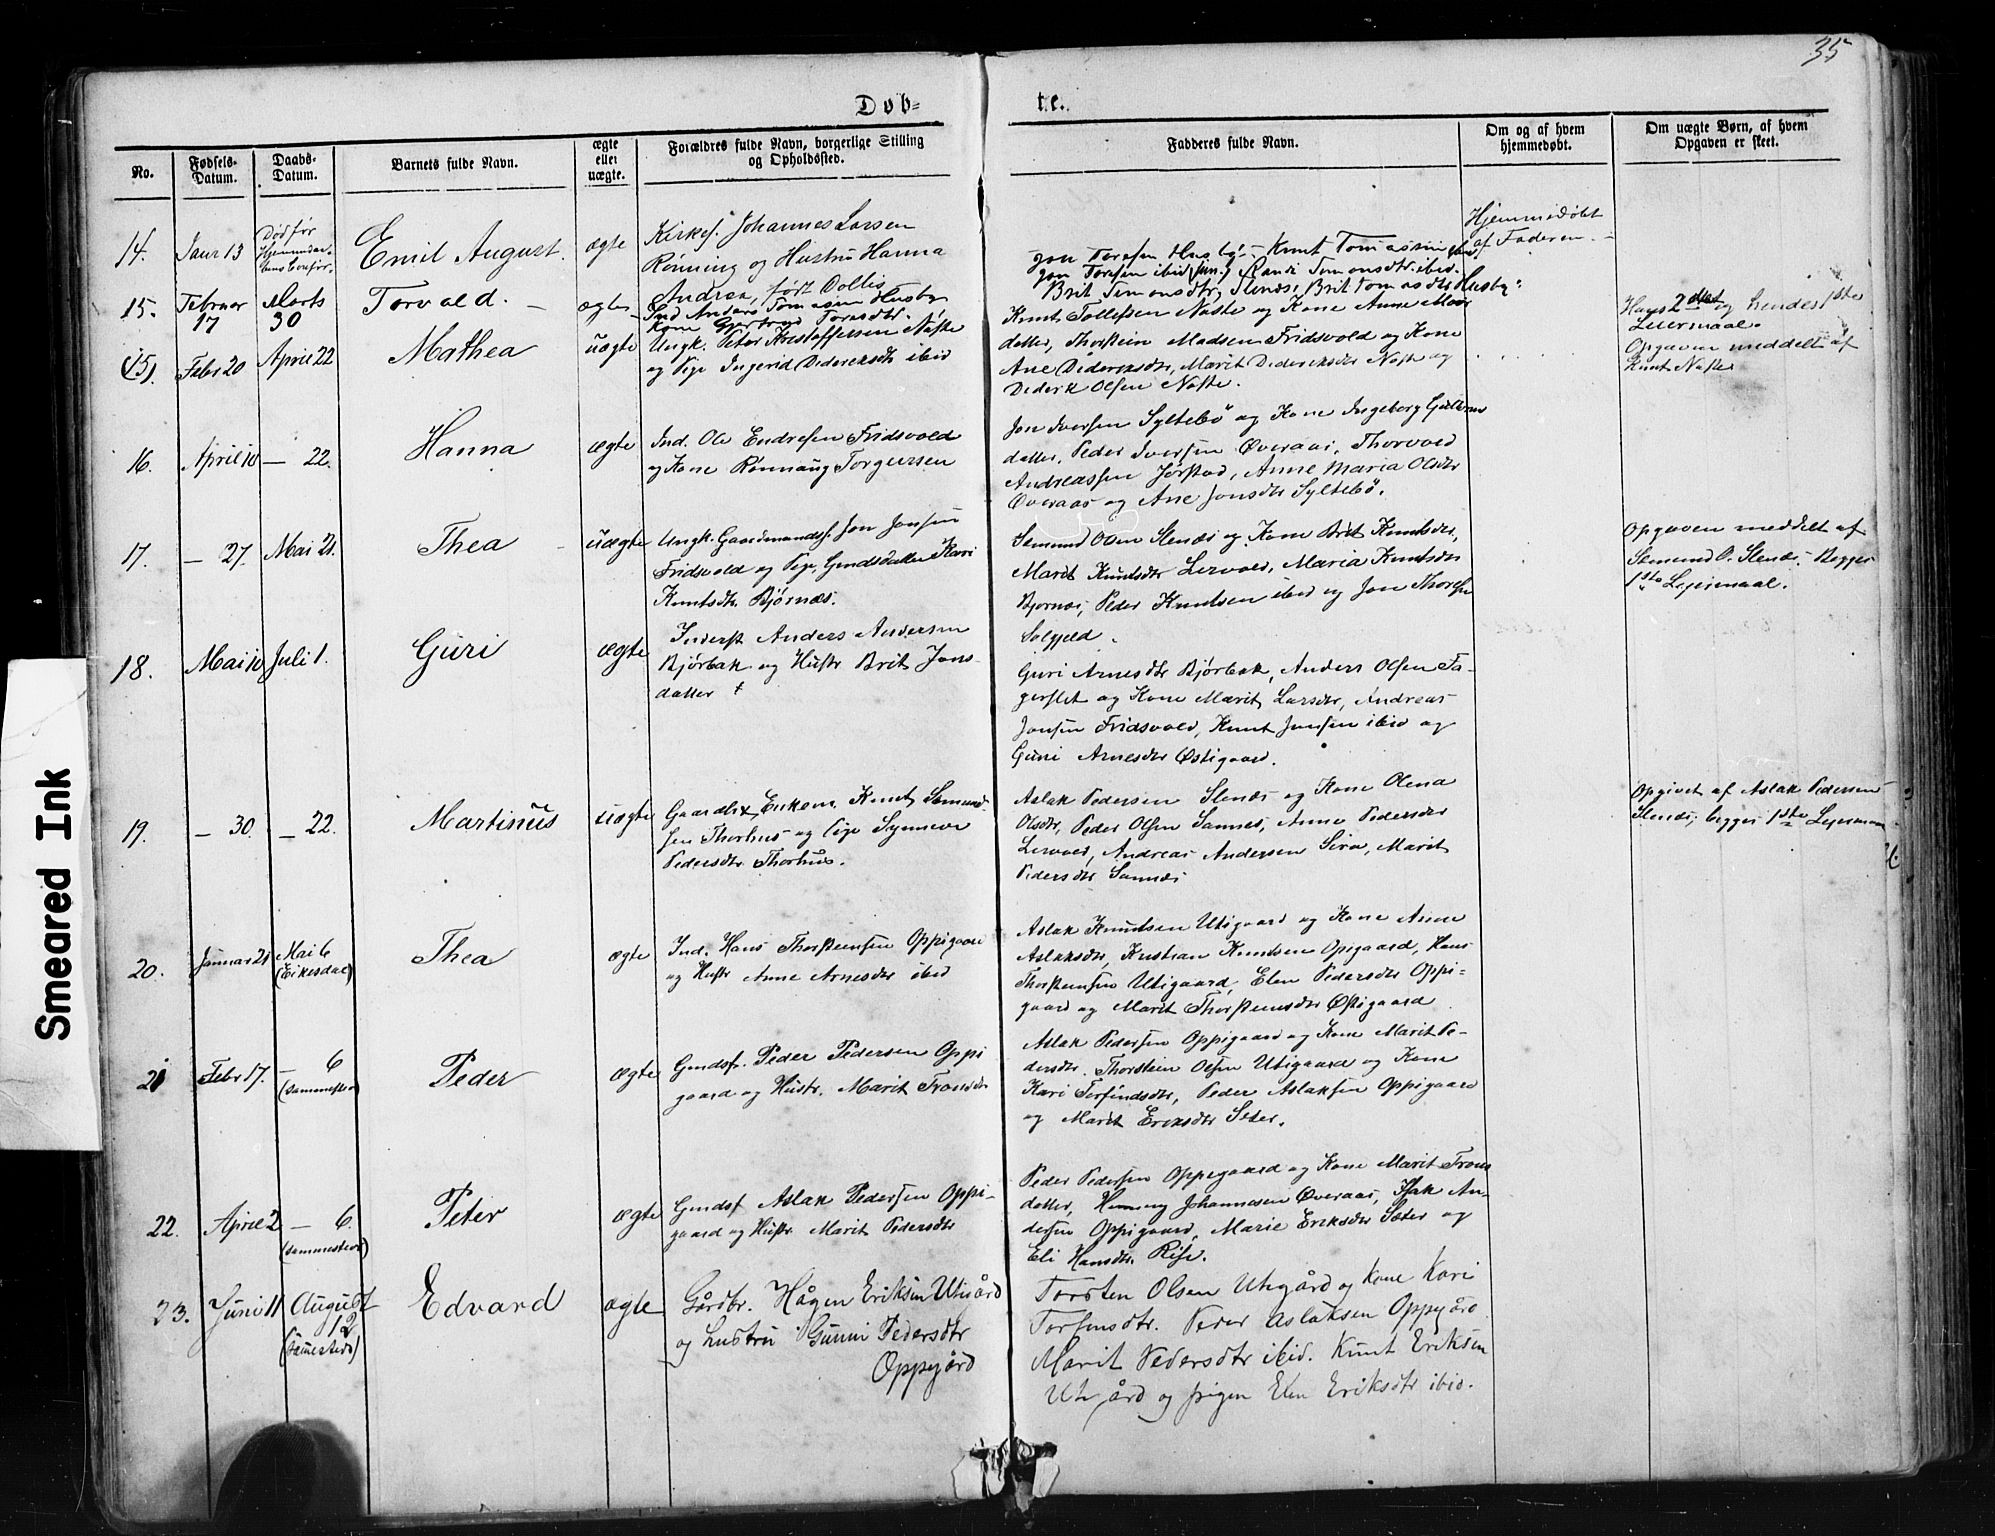 35
Døb-
te.
No.
Fødsels-
Datum.
Daabs-
Datum.
Barnets fulde Navn.
ægte
eller
uægte.
Forældres fulde Navn, borgerlige Stilling
og Opholdssted.
Fadderes fulde Navn.
Om og af hvem
hjemmedøbt.
Om uægte Børn, af hvem
Opgaven er skeet.
14.
Janr 13
Død før
Emil August.
ægte
Kirkes. Johannes Larsen
Rønning og Hustru Hanna
Andrea, født Dollis
Hjemmedøbt
af Faderen.
15.
Februar
17
Marts
30
Torvald.
ægte
Ind Anders Tomassen Husby
Kone Gjertrud Toresdtr.
Jon Toresen Husby, Knut Tomassen ibid
Jon Toresen ibid (jun.) Randi Simonsdtr. ibid.
Brit Simonsdtr. Slenes, Brit Tomasdtr Husby
(15).
Febr 20
April 22
Mathea
uægte
Ungk. Peter Kristoffersen Nøste
og Pige Ingerid Didereksdtr ibid
Knut Tollefsen Nøste og Kone Anne Mons
datter, Thorstein Madsen Fridsvold og Kone
Ane Didereksdtr, Marit Didereksdtr Nøste og
Diderk Olsen Nøste.
Hans 2det og hendes 1ste
Leiermaal.
Opgaven meddelt af
Knut Nøste
16.
April 10
— 22.
Hanna
ægte
Ind. Ole Endresen Fridsvold
og Kone Rønnaug Torgersen
Jon Iversen Syltebø og Kone Ingeborg Guttorms
datter, Peder Iversen Øveraas, Thorvald
Andreassen Jørstad, Anne Maria Olsdtr
Øveraas og Ane Jonsdtr Syltebø.
17.
— 27.
Mai 21.
Thea
uægte
Ungk. Gaardmands. Jon Jonsen
Fridsvold og Pige Gmdsdatter Kari
Knutsdtr. Bjørnæs.
Semund Olsen Slenæs og Kone Brit Knutsdtr,
Marit Knutsdtr Lervold, Maria Knutsdtr
Bjørnæs, Peder Knutsen ibid og Jon Thoresen
Solgjeld.
Opgaven meddelt af
Semund O. Slenæs. Begges
1ste Leiermaal.
18.
Mai 10
Juli 1.
Guri
ægte
Inderst Anders Andersen
Bjørbak og Hustr Brit Jons-
datter
Guri Arnesdtr Bjørbak, Anders Olsen Fa-
gerslet og Kone Marit Larsdtr, Andreas
Jonsen Fridsvold, Knut Jonsen ibid og
Guri Arnesdtr Østigaard.
19.
— 30.
— 22.
Martinus
uægte
Gaardbr, Enkem. Knut Semund-
sen Thorhus og Pige Synneve
Pedersdtr. Thorhus.
Aslak Pedersen Slenæs og Kone Olena
Olsdtr, Peder Olsen Sannes, Anne Pedersdtr
Lervold, Andreas Andersen Sira, Marit
Pedersdtr Sannes
Opgivet af Aslak Pedersen
Slenæs, begges 1ste Leierma-
al.
20.
Januar 21
Mai 6
(Eikesdal)
Thea
ægte
Ind. Hans Thorsteinsen Oppigaard
og Hustr Anne Arnesdtr ibid
Aslak Knutsen Utigaard og Kone Anne
Aslaksdtr, Kristian Knutsen Opigaard, Hans
Thorsteinsen Utigaard, Elen Pedersdtr Oppi-
gaard og Marit Thorsteinsdtr Østigaard
21
Febr 17.
— 6
(sammested)
Peder
ægte
Gmdsf. Peder Pedersen Oppi
gaard og Hustr. Marit Tronsdtr
Aslak Pedersen Oppigaard og Kone Marit Pe-
dersdtr. Thorstein Olsen Utigaard og Kone
Kari Torfindsdtr, Peder Aslaksen Oppigaard
og Marit Eriksdtr Sæter.
22.
April 2
— 6.
(sammested)
Peter
ægte
Gmdsf Aslak Pedersen Oppi-
gaard og Hustr Marit Pedersdtr
Peder Pedersen Oppigaard og Kone Marit Trons
datter, Henning Johannesen Øveraas, Isak An-
dersen Oppigaard, Marie Eriksdtr Sæter og
Eli Hansdtr. Rise.
23.
Juni 11
August
12
(samested)
Edvard
ægte
Gårdbr. Hågen Eriksen Utigård
og hustru Gunni Pedersdtr
Oppigård
Torsten Olsen Utigård og Kone Kari
Torfinsdtr. Peder Aslaksen Oppigård
Marit Pedersdtr ibid. Knut Eriksen
Utigård og pigen Elen Eriksdtr ibid.
Smeared Ink